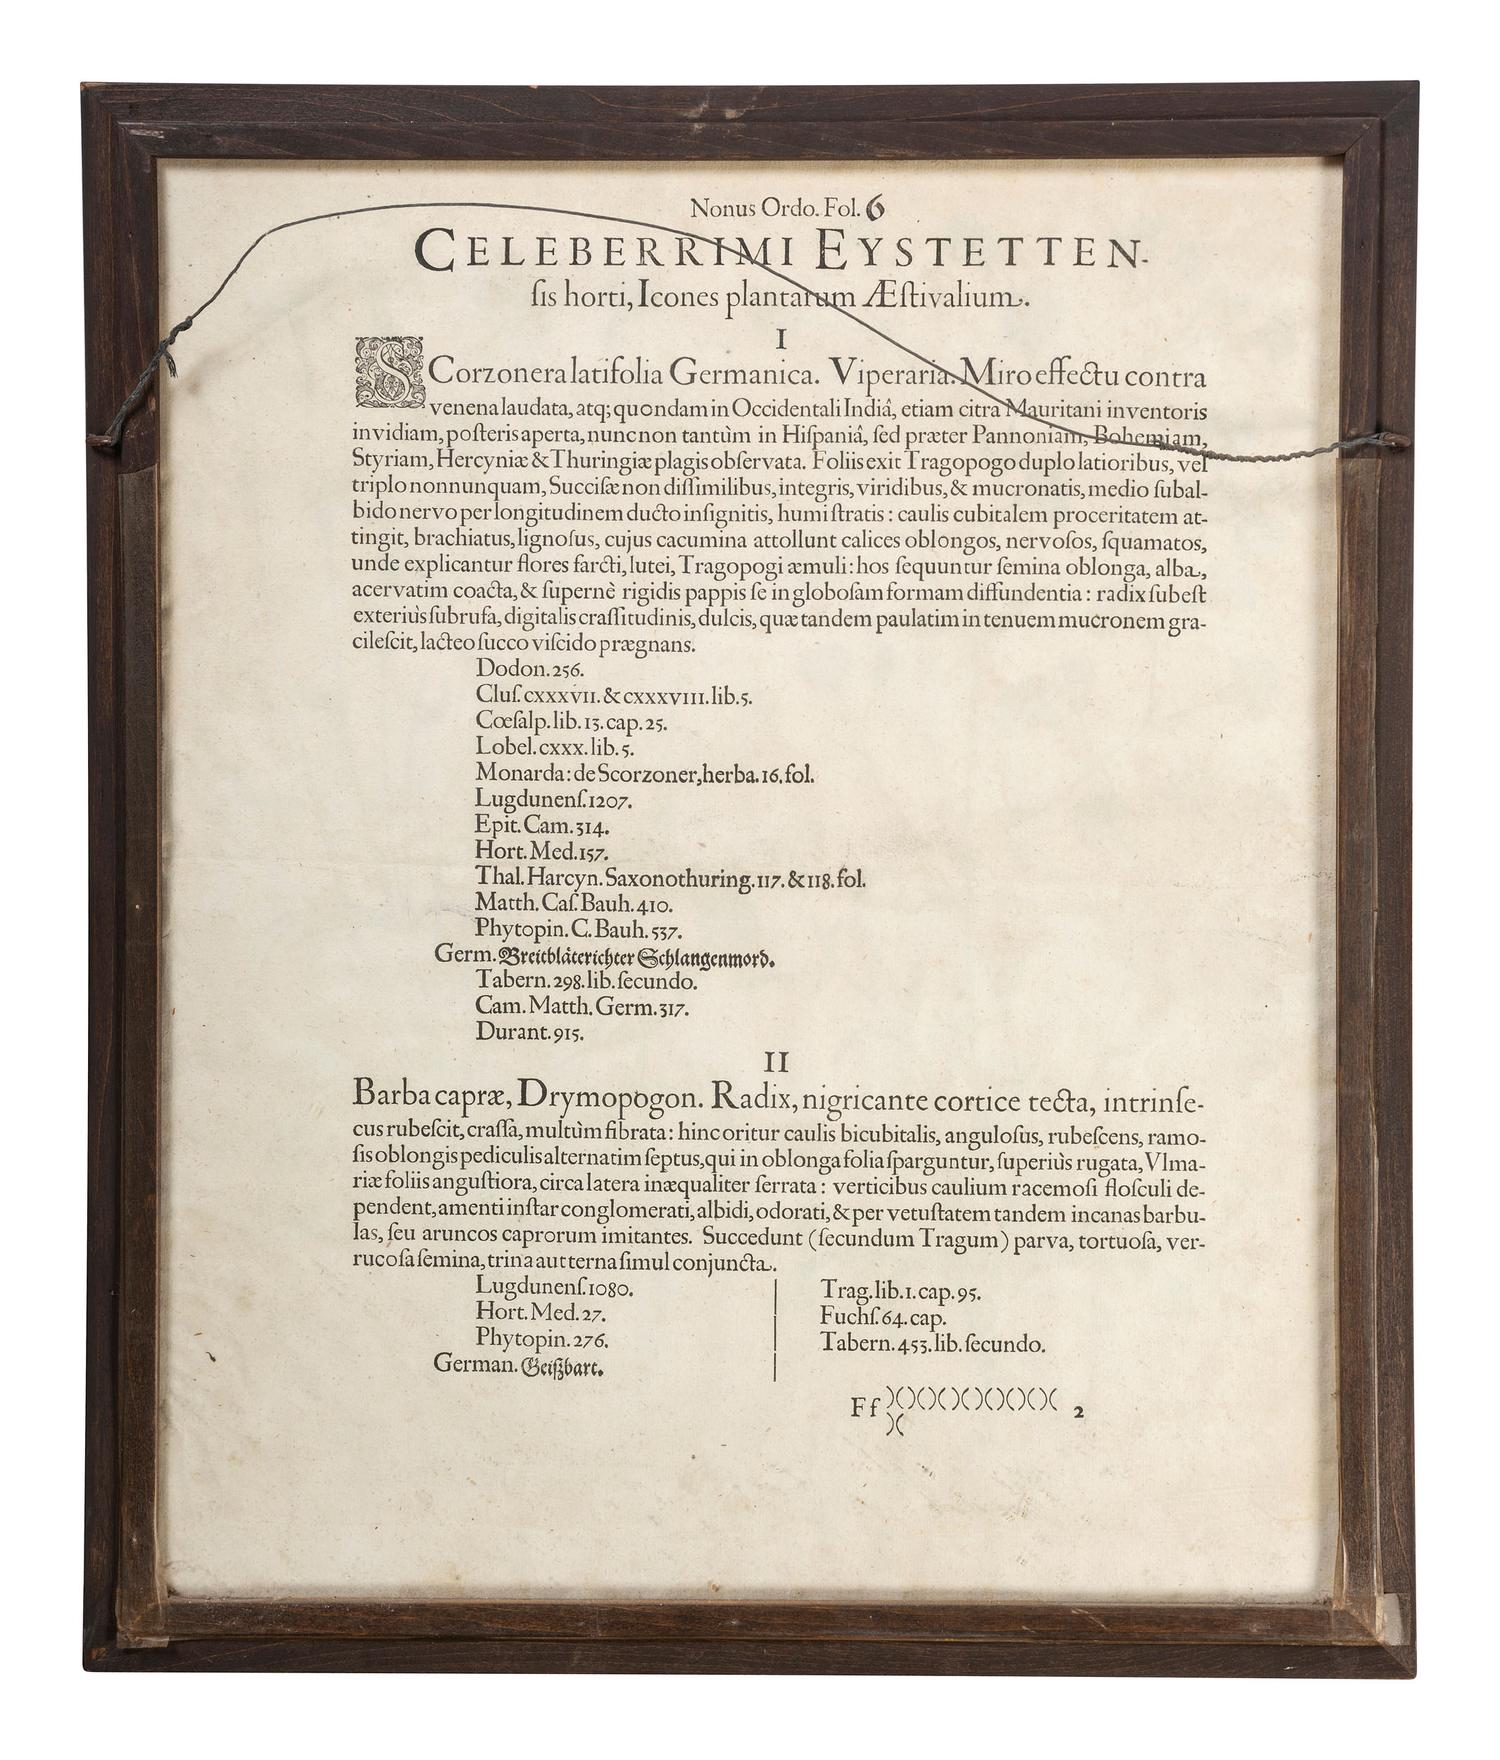 Nonus Ordo. Fol. 6
CELEBERRIMI EYSTETTEN-
ſis horti, Icones plantarum Æſtivalium.
I
SCorzonera latifolia Germanica. Viperaria. Miro effectu contra
venena laudata, atq; quondam in Occidentali Indiâ, etiam citra Mauritani inventoris
invidiam, poſteris aperta, nunc non tantùm in Hiſpaniâ, ſed præter Pannoniam, Bohemiam,
Styriam, Hercyniæ & Thuringiæ plagis obſervata. Foliis exit Tragopogo duplo latioribus, vel
triplo nonnunquam, Succiſæ non diſſimilibus, integris, viridibus, & mucronatis, medio ſubal-
bido nervo per longitudinem ducto inſignitis, humi ſtratis : caulis cubitalem proceritatem at-
tingit, brachiatus, lignoſus, cujus cacumina attollunt calices oblongos, nervoſos, ſquamatos,
unde explicantur flores farcti, lutei, Tragopogi æmuli: hos ſequuntur ſemina oblonga, alba,
acervatim coacta, & ſupernè rigidis pappis ſe in globoſam formam diffundentia : radix ſubeſt
exteriùs ſubrufa, digitalis craſſitudinis, dulcis, quæ tandem paulatim in tenuem mucronem gra-
cileſcit, lacteo ſucco viſcido prægnans.
Dodon. 256.
Cluſ. CXXXVII. & CXXXVIII. lib. 5.
Cœſalp. lib. 13. cap. 25.
Lobel. CXXX. lib. 5.
Monarda: de Scorzoner, herba. 16. fol.
Lugdunenſ. 1207.
Epit. Cam. 314.
Hort. Med. 157.
Thal. Harcyn. Saxonothuring. 117. & 118. fol.
Matth. Caſ. Bauh. 410.
Phytopin. C. Bauh. 537.
Germ. Breitbläterichter Schlangenmord.
Tabern. 298. lib. ſecundo.
Cam. Matth. Germ. 317.
Durant. 915.
II
Barba capræ, Drymopogon. Radix, nigricante cortice tecta, intrinſe-
cus rubeſcit, craſſa, multùm fibrata : hinc oritur caulis bicubitalis, anguloſus, rubeſcens, ramo-
ſis oblongis pediculis alternatim ſeptus, qui in oblonga folia ſparguntur, ſuperiùs rugata, Vlma-
riæ foliis anguſtiora, circa latera inæqualiter ſerrata : verticibus caulium racemoſi floſculi de-
pendent, amenti inſtar conglomerati, albidi, odorati, & per vetuſtatem tandem incanas barbu-
las, ſeu aruncos caprorum imitantes. Succedunt (ſecundum Tragum) parva, tortuoſa, ver-
rucoſa ſemina, trina aut terna ſimul conjuncta.
Lugdunenſ. 1080.
Hort. Med. 27.
Phytopin. 276.
German. Geißbart.
Trag. lib. 1. cap. 95.
Fuchſ. 64. cap.
Tabern. 453. lib. ſecundo.
Ff )()()()()()()()( 2
)(